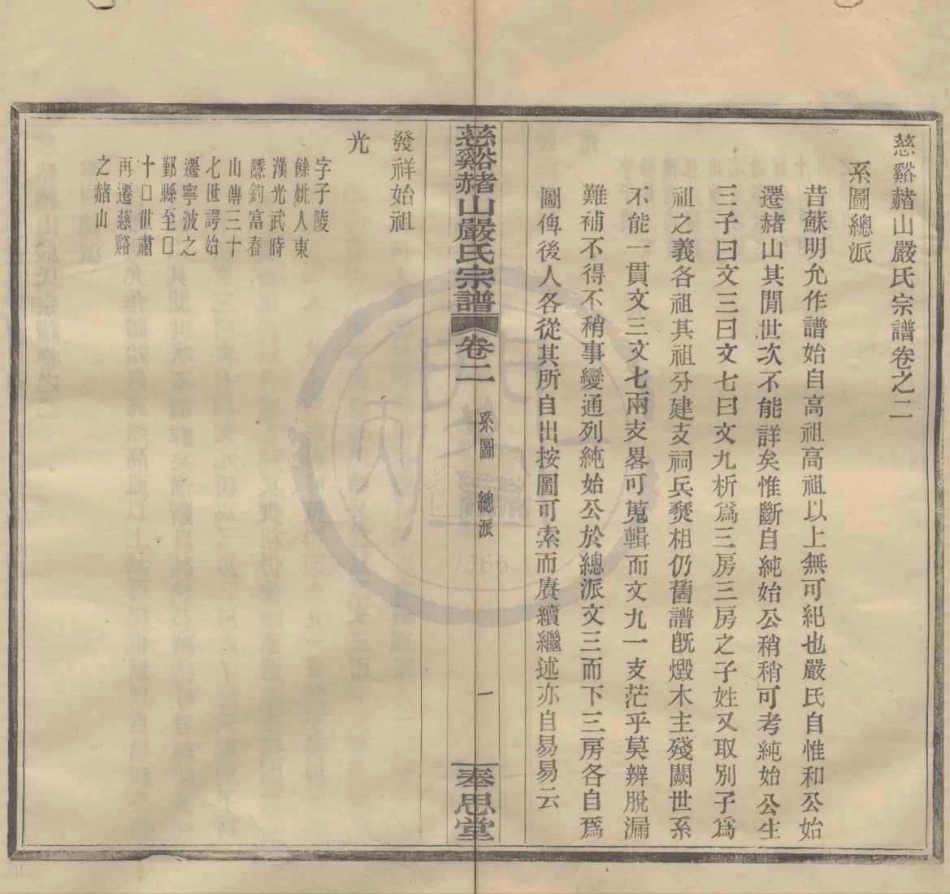 慈谿赭山嚴氏宗譜卷之二
系圖總派
昔蘇明允作譜始自高祖高祖以上無可紀也嚴氏自惟和公始
遷赭山其閒世次不能詳矣惟斷自純始公稍稍可考純始公生
三子曰文三曰文七曰文九析爲三房三房之子姓又取別子爲
祖之義各祖其祖分建支祠兵燹相仍舊譜旣燬木主殘闕世系
不能一貫文三文七兩支畧可蒐輯而文九一支茫乎莫辨脫漏
難補不得不稍事變通列純始公於總派文三而下三房各自爲
圖俾後人各從其所自出按圖可索而賡續繼述亦自易易云
慈谿赭山嚴氏宗譜 卷二 系圖 總派 一 奉思堂
發祥始祖
光
字子陵
餘姚人東
漢光武時
隱釣富春
山傳三十
七世諤始
遷寧波之
鄞縣至口
十口世肅
再遷慈谿
之赭山